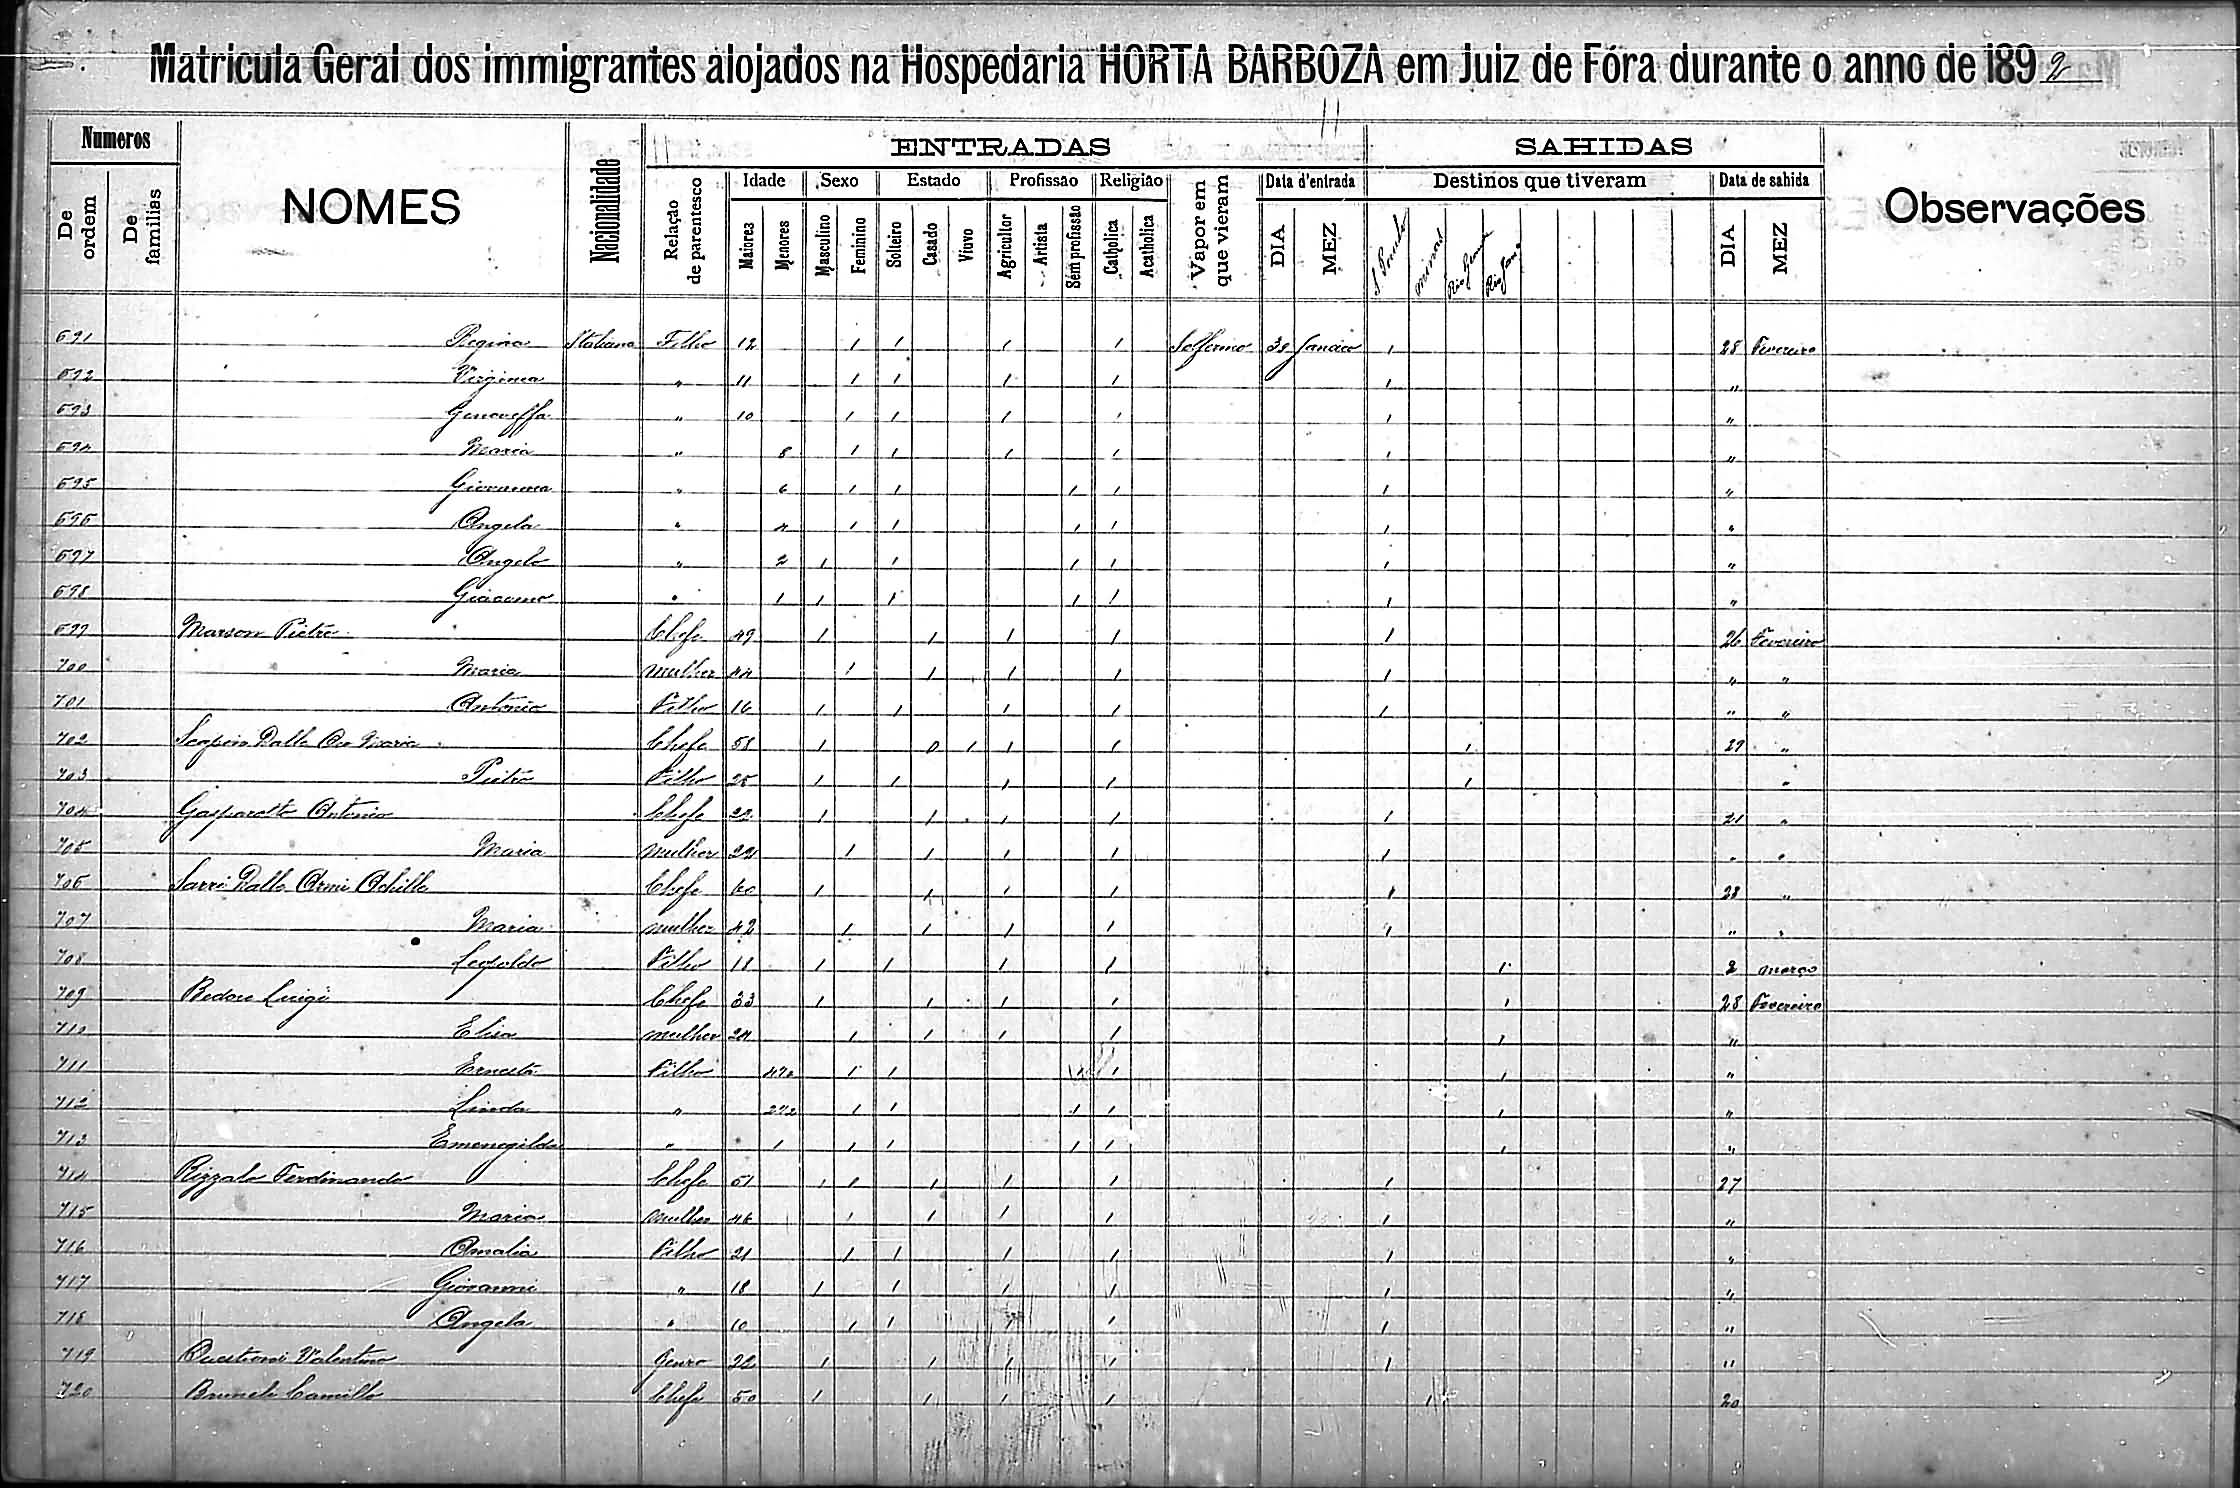 Matricula Geral dos immigrantes alojados na Hospedaria HORTA BARBOZA em Juiz de Fóra durante o anno de 1892
Numeros NOMES Nacionalidade ENTRADAS SAHIDAS Observações
De ordem De familias Relação de parentesco Idade Sexo Estado Profissão Religião Vapor em que vieram Data d'entrada Destinos que tiveram Data de sahida
Maiores Menores Masculino Feminino Solteiro Casado Viuvo Agricultor Artista Sem profissão Catholica Acatholica DIA MEZ S Paulo Minas Rio Jan. DIA MEZ
691 Regina Italiana Filho 12 1 1 1 1 Solferino 30 Janeiro 1 28 Fevereiro
692 Virginia " 11 1 1 1 1 1 "
693 Genoveffa " 10 1 1 1 1 1 "
694 Maria " 8 1 1 1 1 1 "
695 Giovanna " 6 1 1 1 1 1 "
696 Angela " 4 1 1 1 1 1 "
697 Angelo " 2 1 1 1 1 1 "
698 Giacomo " 1 1 1 1 1 1 "
699 Marson Pietro Chefe 49 1 1 1 1 1 26 Fevereiro
700 Maria mulher 44 1 1 1 1 1 " "
701 Antonio Filho 16 1 1 1 1 1 " "
702 Scapin Dalla Maria Chefe 58 1 0 1 1 1 1 29 "
703 Pietro Filho 25 1 1 1 1 1 "
704 Gasparotto Antonio Chefe 22 1 1 1 1 1 21 "
705 Maria mulher 22 1 1 1 1 1 " "
706 Sarri Dalla Armi Achille Chefe 60 1 1 1 1 1 28 "
707 Maria mulher 42 1 1 1 1 1 " "
708 Leopoldo Filho 18 1 1 1 1 1 2 março
709 Bedore Luigi Chefe 33 1 1 1 1 1 28 Fevereiro
710 Elisa mulher 24 1 1 1 1 1 "
711 Ernesta Filho 1 1 1 1 1 "
712 Linda " 1 1 1 1 1 "
713 Emenegilda " 1 1 1 1 1 1 "
714 Rizzalo Ferdinando Chefe 51 1 1 1 1 1 1 27
715 Maria mulher 46 1 1 1 1 1 "
716 Amalia Filho 21 1 1 1 1 1 "
717 Giovanni " 18 1 1 1 1 1 "
718 Angela " 10 1 1 1 1 1 "
719 Valentino Genro 22 1 1 1 1 1 "
720 Camillo Chefe 50 1 1 1 1 1 20